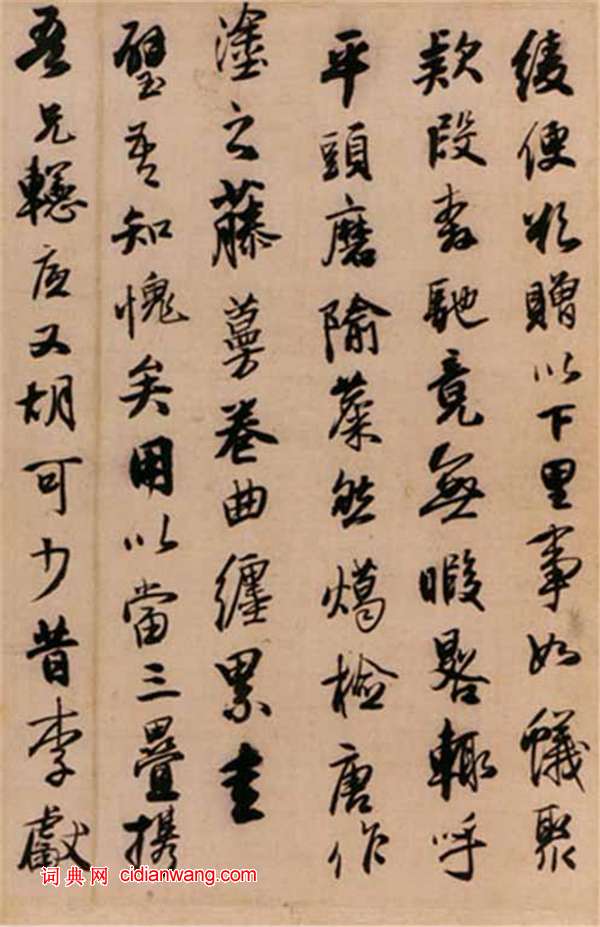 綾便欲贈以下里事如蟻聚
欵段奔馳竟無暇晷輒呼
平頭磨隃糜然燭檢唐作
塗之藤蔓卷曲纏累圭
璧吾知愧矣用以當三疊攜
吾兄又胡可少昔李獻
词典网 cidianwang.com